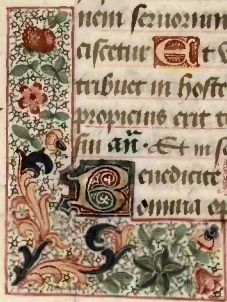 nem seruorum
ciscetur Et
tribuet in hoste
propicius erit t
sui añ. Et in s
Benedicite
omnia op